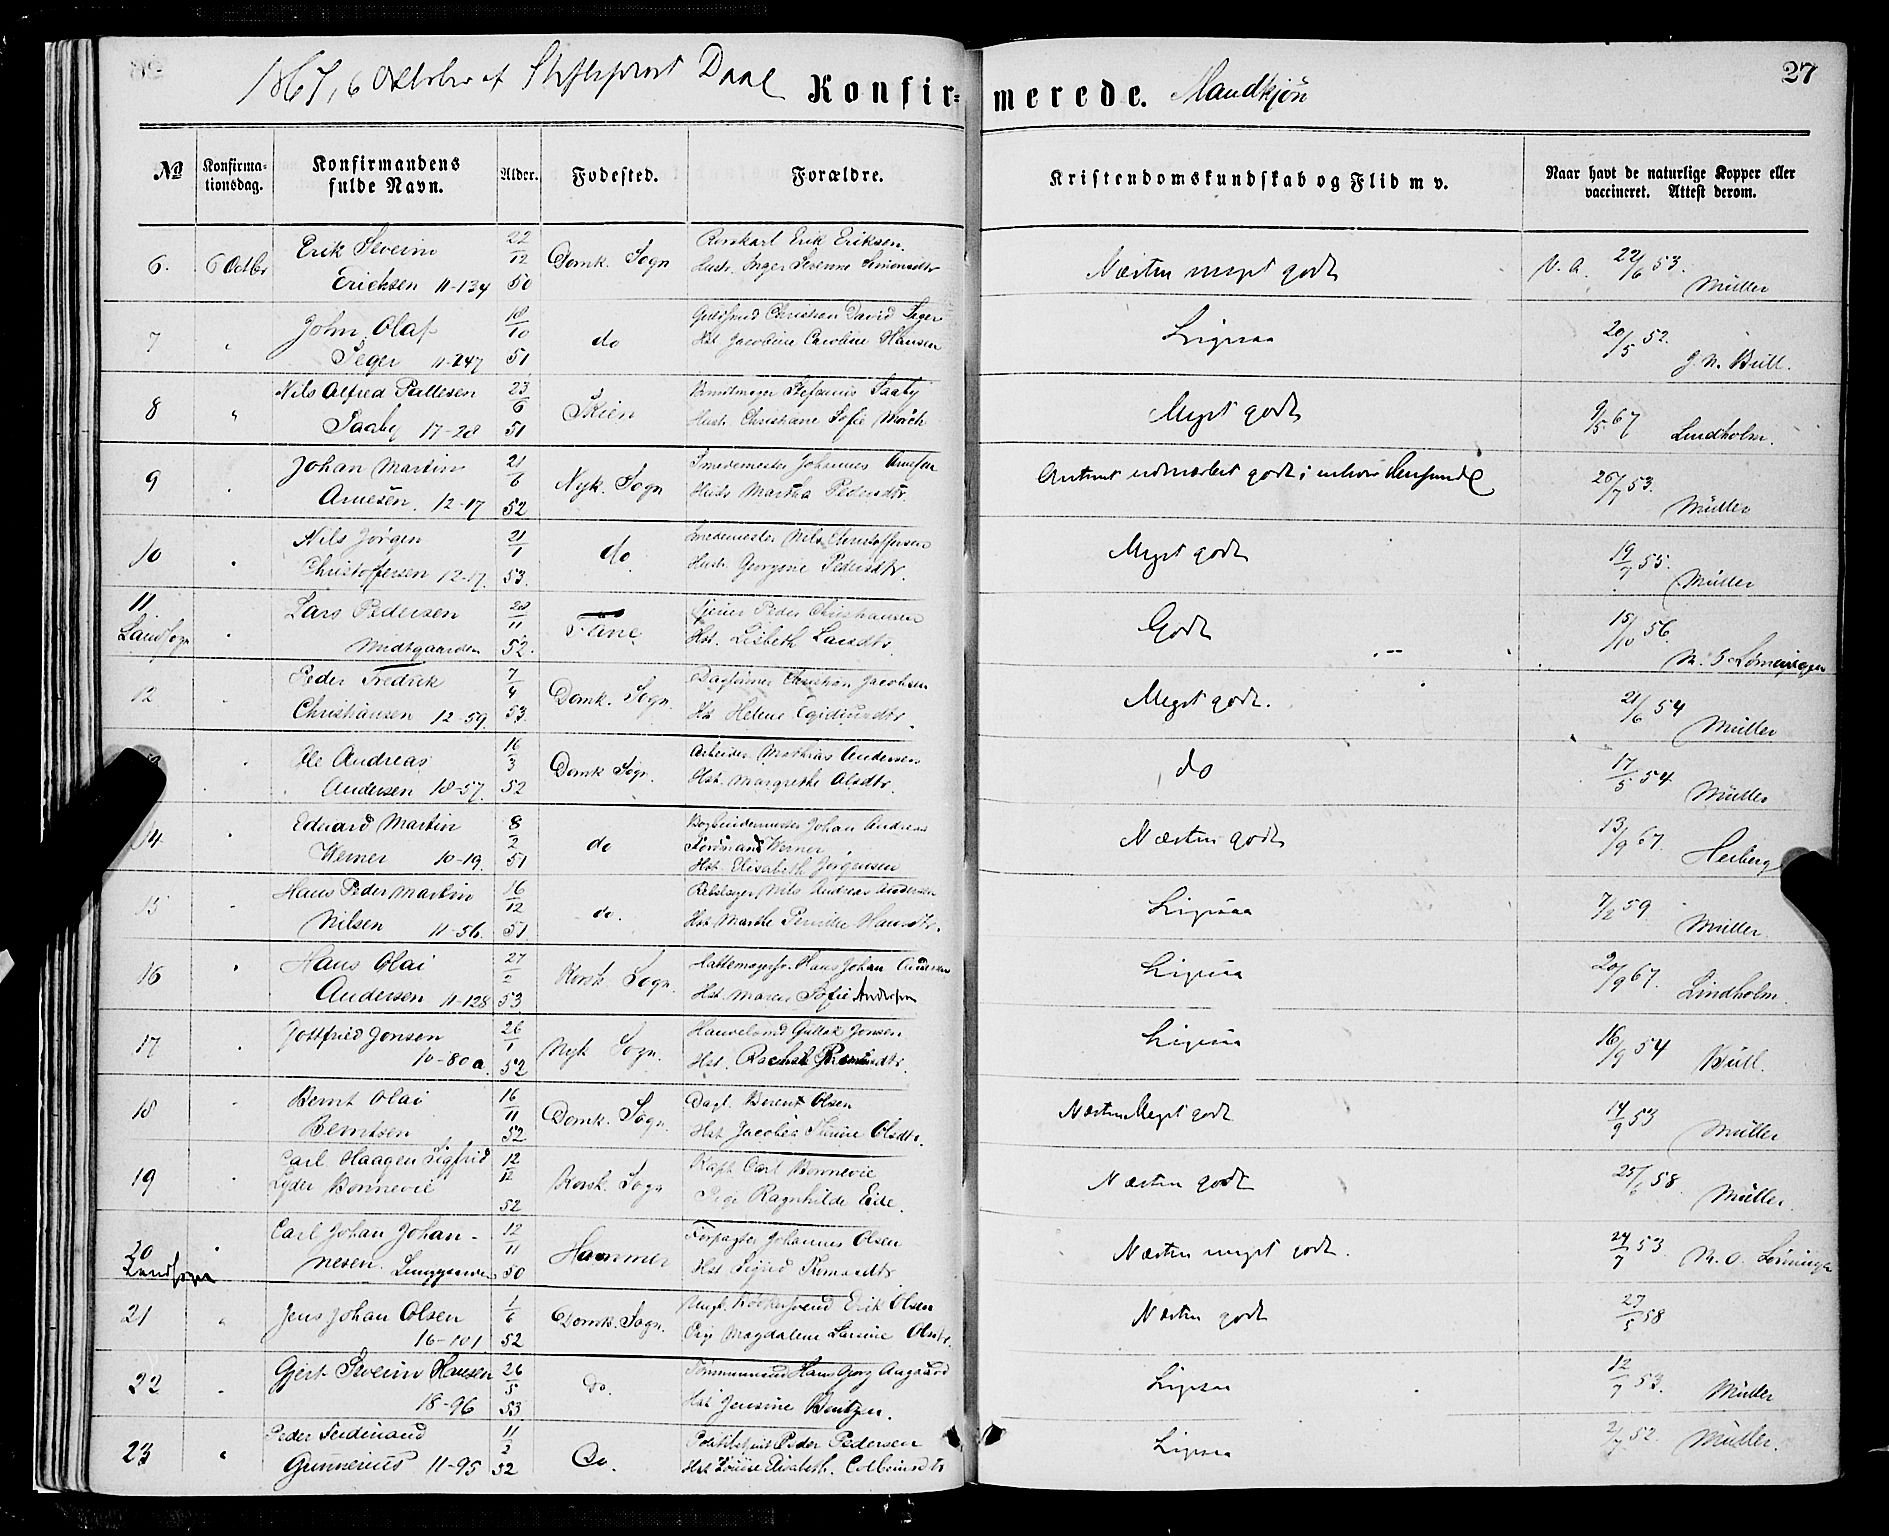 1867, 6 Oktober af Stiftsprost Daae
Konfirmerede. Mandkjön
27
No
Konfirmationsdag.
Konfirmandens fulde Navn.
Alder.
Fødested.
Forældre.
Kristendomskundskab og Flid m v.
Naar havt de naturlige Kopper eller vaccineret. Attest derom.
6. 6 Octbr Erik Severin 22/12 Domk. Sogn Erik Eriksen. Næsten meget godt V. A. 22/6 53.
Erichsen 11-134 50 Hustr. Inger Severine Müller
7 " John Olaf 18/10 do Guldsmed Christian David Seger Ligesaa 20/5 52.
Seger 11-247 51 Hst Jacobine Caroline Hansen J. N. Bull.
8 " Nils Alfred Pallesen 23/6 Skien Saaby Meget godt 9/5 67
Saaby 17-28 51 Hustr. Christiane Sofie Mørch Lindholm.
9 " Johan Martin 21/6 Nyk. Sogn Smedemester Johannes Arnesen godt i enhver Henseende 26/7 53.
Arnesen. 12-17 52 Hustr Martha Pedersdtr. Müller
10 " Nils Jörgen 21/1 do Smedemester Nils Christoffersen Meget godt 19/7 55.
Christoffersen 12-17. 53. Hustr. Georgine Pedersdtr. Müller
11 Landsogn " Lars Pedersen 20/11 Peder Christiansen Godt 15/10 56.
Midtgaarden 52. Hst. Lisbeth Larsdtr.
12 " Peder Fredrik 7/4 Domk. Sogn. Christian Jacobsen Meget godt. 21/6 54
Christiansen 12-59. 53. Hst Helene Müller
" Ole Andreas 16/3 Domk Sogn. Arbeider Mathias Andersen do 17/5 54
Andersen 18-57. 52 Hst. Margrethe Olsdtr. Müller
14 " Edvard Martin 8/2 do Bogbindermester Johan Andreas Næsten godt 13/9 67.
Werner 10-19. 51 Ferdinand Werner Heiberg
Hst Elisabeth Jörgensen
15 " Hans Peder Martin 16/12 do. Rebslager Nils Andreas Andersen Ligesaa 7/2 59
Nilsen 11-56. 51. Hst Marthe Pernille Hansdtr. Müller
16 " Hans Olai 27/2 Korsk. Sogn. Hans Johan Andersen Ligesaa 20/9 67.
Andersen 11-128 53. Hst. Maren Sofie Andersen Lindholm.
17 " Gottfried Jonsen 26/1 Nyk Sogn. Gullak Jonsen Ligesaa 16/9 54
10-80a. 52 Hst. Rachel Bull.
18 " Bernt Olai 16/11 Domk. Sogn. Dagl. Berent Olsen Næsten Meget godt 14/9 53
Berntsen 52 Hst Jacobia Olsdtr. Müller
19 " Carl Haagen Sigfrid 12/12 Korsk. Sogn Kapt. Carl Bonnevie Næsten godt 25/6 58
Lyder Bonnevie 52 Pige Ragnhilde Eide. Müller.
20 Landsogn " Carl Johan Johan- 12/11 Hammer Forpagter Johannes Olsen Næsten meget godt. 24/7 53
nesen. 50 Hst Sigrid
21 " Jens Johan Olsen 1/6 Domk. Sogn. Ungk. Erik Olsen Næsten godt 27/5 58
16-101. 52 Pige Magdalene Larsine
22 " Gjert Severin Hansen 26/5 do. Tömmermand Hans Georg Aagaard Ligesaa 12/7 53.
18-96 53 Hst Jensine Bentzen. Müller
23 " Peder Ferdinand 11/2 Do. Peder Pedersen Ligesaa 2/7 52
Gunnerius 11-95 52 Hst Louise Elisabeth. Müller.